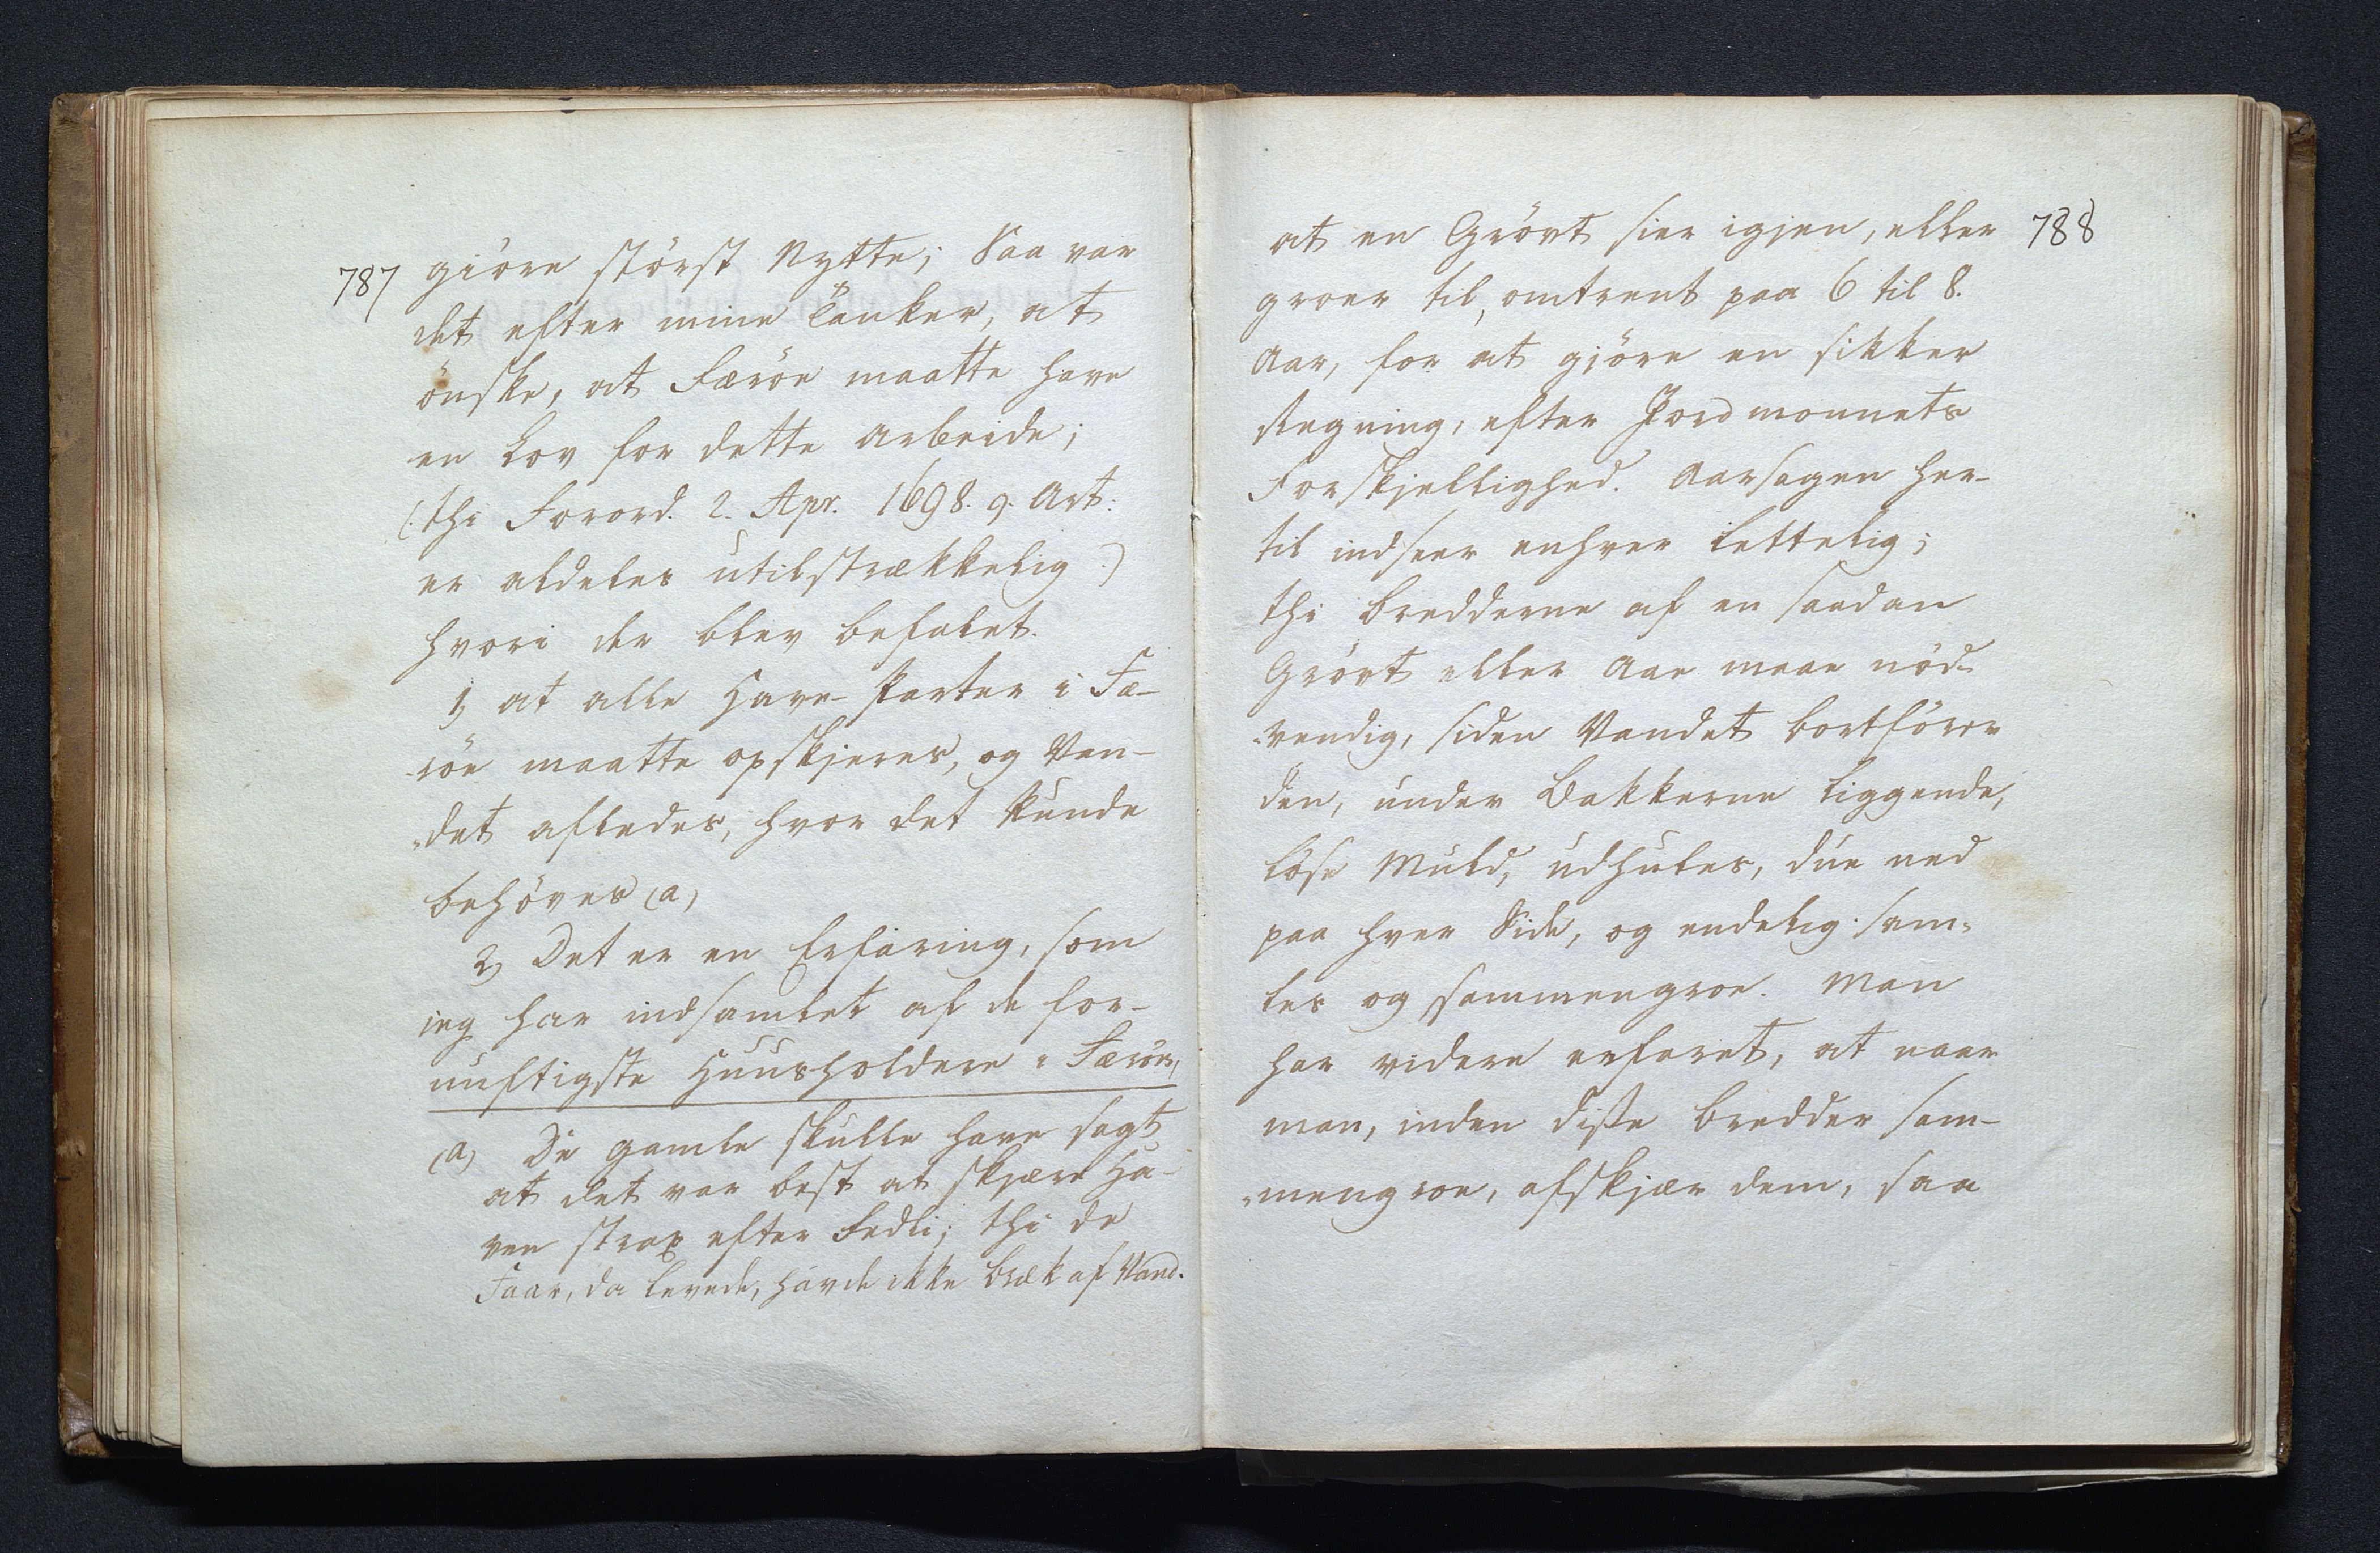 787
giöre störst Nytte; Saa var
det efter mine Tanker, at
önske, at Færöe maatte have
en Lov for dette Arbeide;
(: thi Forord. 2. Apr. 1698. 9. Art.
er aldeles utilstrækkelig :)
hvori der blev befalet.
1, at alle Have-Parter i Fæ-
röe maatte opskjeres, og Van-
det afledes, hvor det kunde
behöves (a)
2, Det er en Erfaring, som
jeg har indsamlet af de for-
nuftigste Huusholdere i Færöe,
(a) De gamle skulle have sagt
at det var best at skjære Ha-
ven strax efter Fedli; thi de
Faar, da levede, havde ikke Bræk af Vand.
788
at en Grövt sier igjen, eller
groer til, omtrent paa 6 til 8.
Aar, for at gjöre en sikker
Regning, efter Jordmonnets
Forskjellighed. Aarsagen her-
til indseer enhver lettelig;
thi Bredderne af en saadan
Grövt eller Aae maae nöd-
vendig, siden Vandet bortförer
den, under Bakkerne liggende,
löse Muld, udhules, due ned
paa hver Side, og endelig sam-
les og sammengroe. Man
har videre erfaret, at naar
man, inden disse Bredder sam-
mengroe, afskjær dem, saa